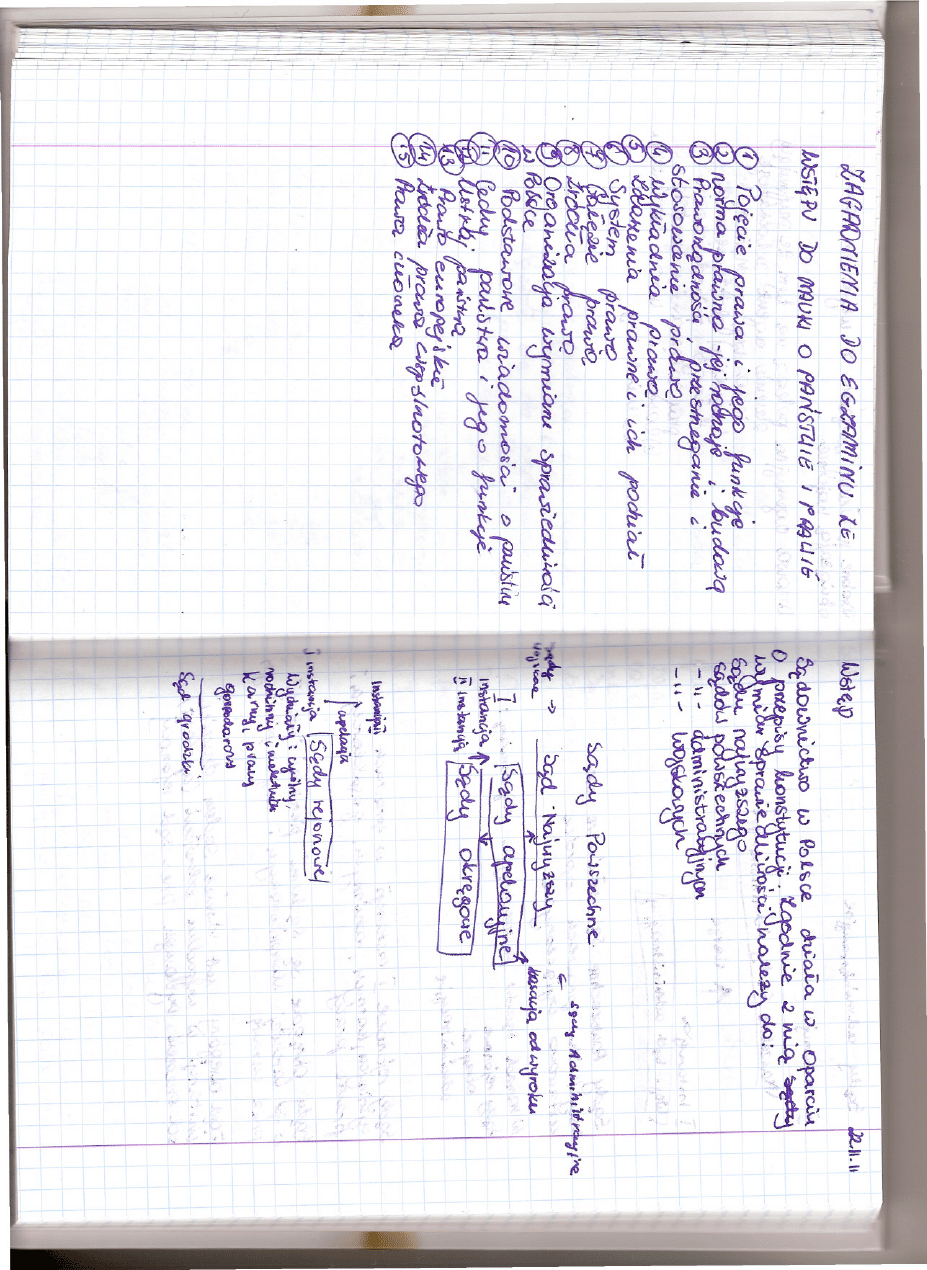 ZAGADNIENIA DO EGZAMINU ZE
WSTĘPU DO NAUKI O PAŃSTWIE I PRAWIE
① Pojęcie prawa i jego funkcje
② norma prawna - jej rodzaje i budowa
③ Praworządność, przestrzeganie i
stosowanie prawa
④ Wykładnia prawa
⑤ Zdarzenia prawne i ich podział
⑥ System prawa
⑦ Gałęzie prawa
⑧ Źródła prawa
⑨ Organizacja wymiaru sprawiedliwości
w Polsce
⑩ Podstawowe wiadomości o państw
⑪ Cechy państwa i jego funkcje
⑫ Ustrój państwa
⑬ Prawo europejskie
⑭ Źródła prawa wspólnotowego
⑮ Prawa człowieka
Wstęp 22.11.11
Sądownictwo w Polsce działa w oparciu
O przepisy konstytucji. Zgodnie z nią sądy
wymiar sprawiedliwości należy do:
Sądu najwyższego
sądów powszechnych
- 11 - administracyjnych
- 11 - wojskowych
Sądy Powszechne
sądy Administracyjne
Sądy
wojskowe → Sąd Najwyższy ←
kasacja od wyroku
I
instancja Sądy apelacyjne
II instancja Sądy okręgowe
instancji
apelacja
I instancja Sądy rejonowe
Wydziały: cywilny
rodzinny i nieletnich
Karny, pracy
gospodarczy
Sąd grodzki